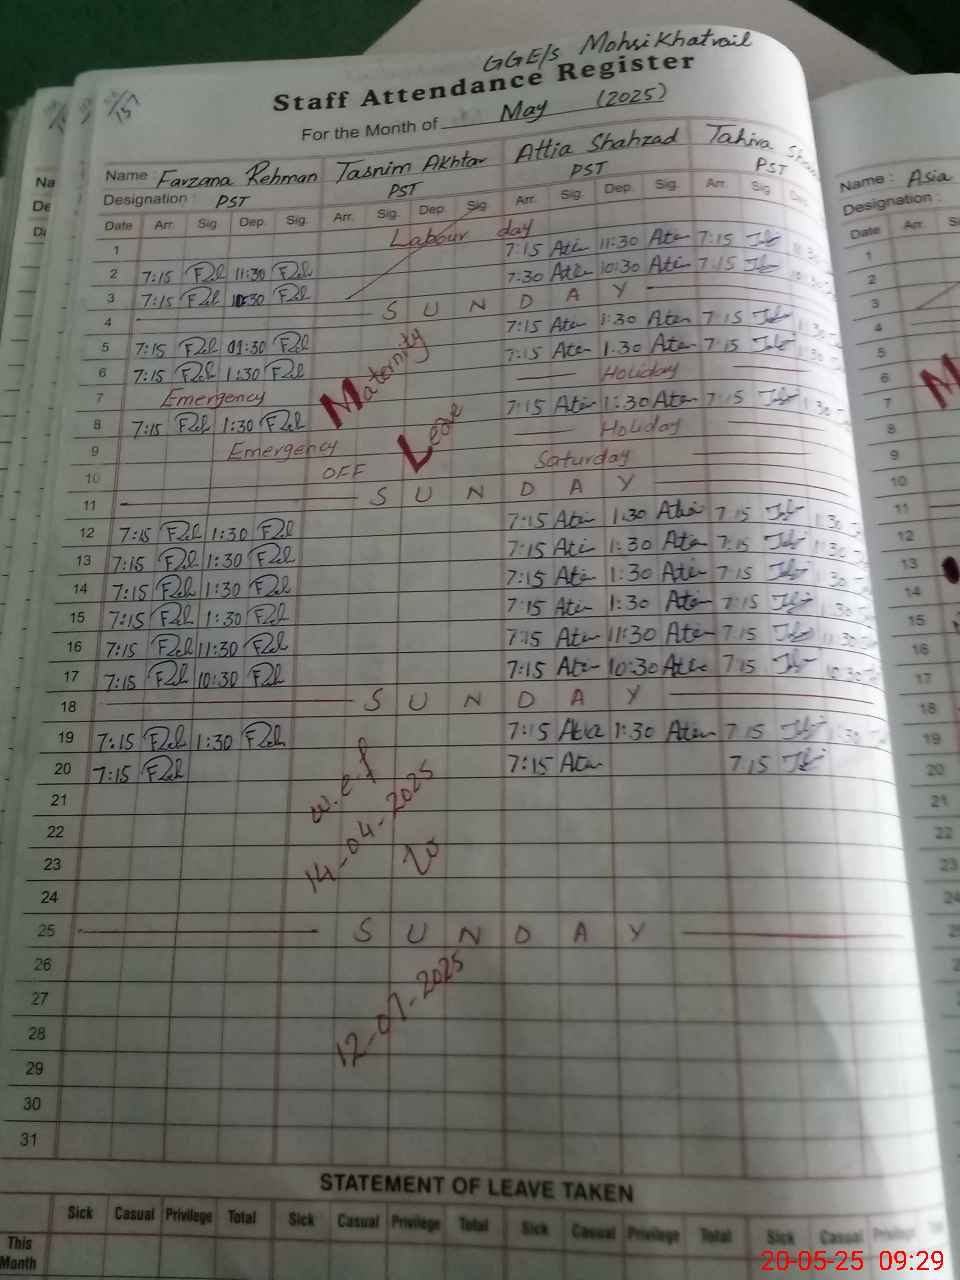 GGE/s Mohsi Khatvail
Staff Attendance Register
For the Month of May (2025)
157
Name Farzana Rehman Tasnim Akhtar Attia Shahzad Tahira
Designation : PST PST PST PST
Date Arr. Sig. Dep. Sig. Arr. Sig. Dep. Sig. Arr. Sig. Dep. Sig. Arr. Sig. Dep.
1 Labour day
2 7:15 11:30 7:15 Atia 11:30 Atia 7:15 11:30
3 7:15 10:30 7:30 Atia 10:30 Atia 7:15 10:30
4 S U N D A Y
5 7:15 01:30 7:15 Atia 1:30 Atia 7:15 1:30
6 7:15 1:30 7:15 Atia 1:30 Atia 7:15 1:30
7 Emergency Holiday
8 7:15 1:30 7:15 Atia 1:30 Atia 7:15 1:30
9 Emergency Holiday
10 OFF Saturday
11 S U N D A Y
12 7:15 1:30 7:15 Atia 1:30 Atia 7:15 1:30
13 7:15 1:30 7:15 Atia 1:30 Atia 7:15 1:30
14 7:15 1:30 7:15 Atia 1:30 Atia 7:15 1:30
15 7:15 1:30 7:15 Atia 1:30 Atia 7:15 1:30
16 7:15 11:30 7:15 Atia 11:30 Atia 7:15 11:30
17 7:15 10:30 7:15 Atia 10:30 Atia 7:15 10:30
18 S U N D A Y
19 7:15 1:30 7:15 Atia 1:30 Atia 7:15 1:30
20 7:15 7:15 Atia 7:15
21
22
23
24
25 S U N D A Y
26
27
28
29
30
31
Maternity
Leave
w.e.f
14-04-2025
to
12-07-2025
STATEMENT OF LEAVE TAKEN
Sick Casual Privilege Total Sick Casual Privilege Total Sick Casual Privilege Total Sick Casual Privilege
This
Month
Name : Asia
Designation :
Date Arr.
1
2
3
4
5
6
7
8
9
10
11
12
13
14
15
16
17
18
19
20
21
22
23
24
20-05-25 09:29